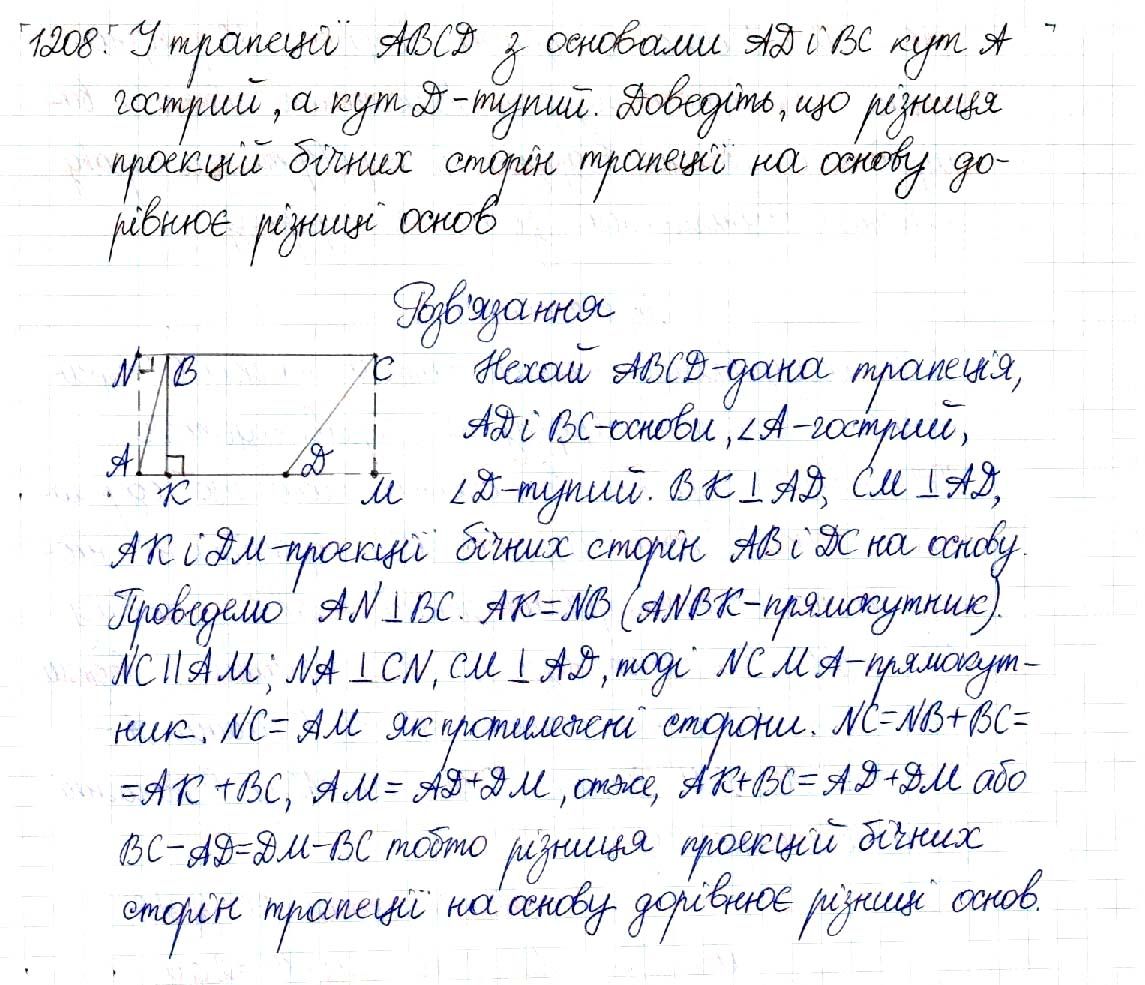 1208. У трапеції ABCD з основами AD і BC кут A
гострий, а кут D - тупий. Доведіть, що різниця
проєкцій бічних сторін трапеції на основу до-
рівнює різниці основ
Розв'язання
N B C
A K D M
Нехай ABCD - дана трапеція,
AD і BC - основи, ∠A - гострий,
∠D - тупий. BK ⊥ AD, CM ⊥ AD,
AK і DM - проєкції бічних сторін AB і DC на основу.
Проведемо AN ⊥ BC. AK = NB (ANBK - прямокутник).
NC || AM; NA ⊥ CN, CM ⊥ AD, тоді NCMA - прямокут-
ник. NC = AM як протилежні сторони. NC = NB + BC =
= AK + BC, AM = AD + DM, отже, AK + BC = AD + DM або
BC - AD = DM - BC тобто різниця проєкцій бічних
сторін трапеції на основу дорівнює різниці основ.